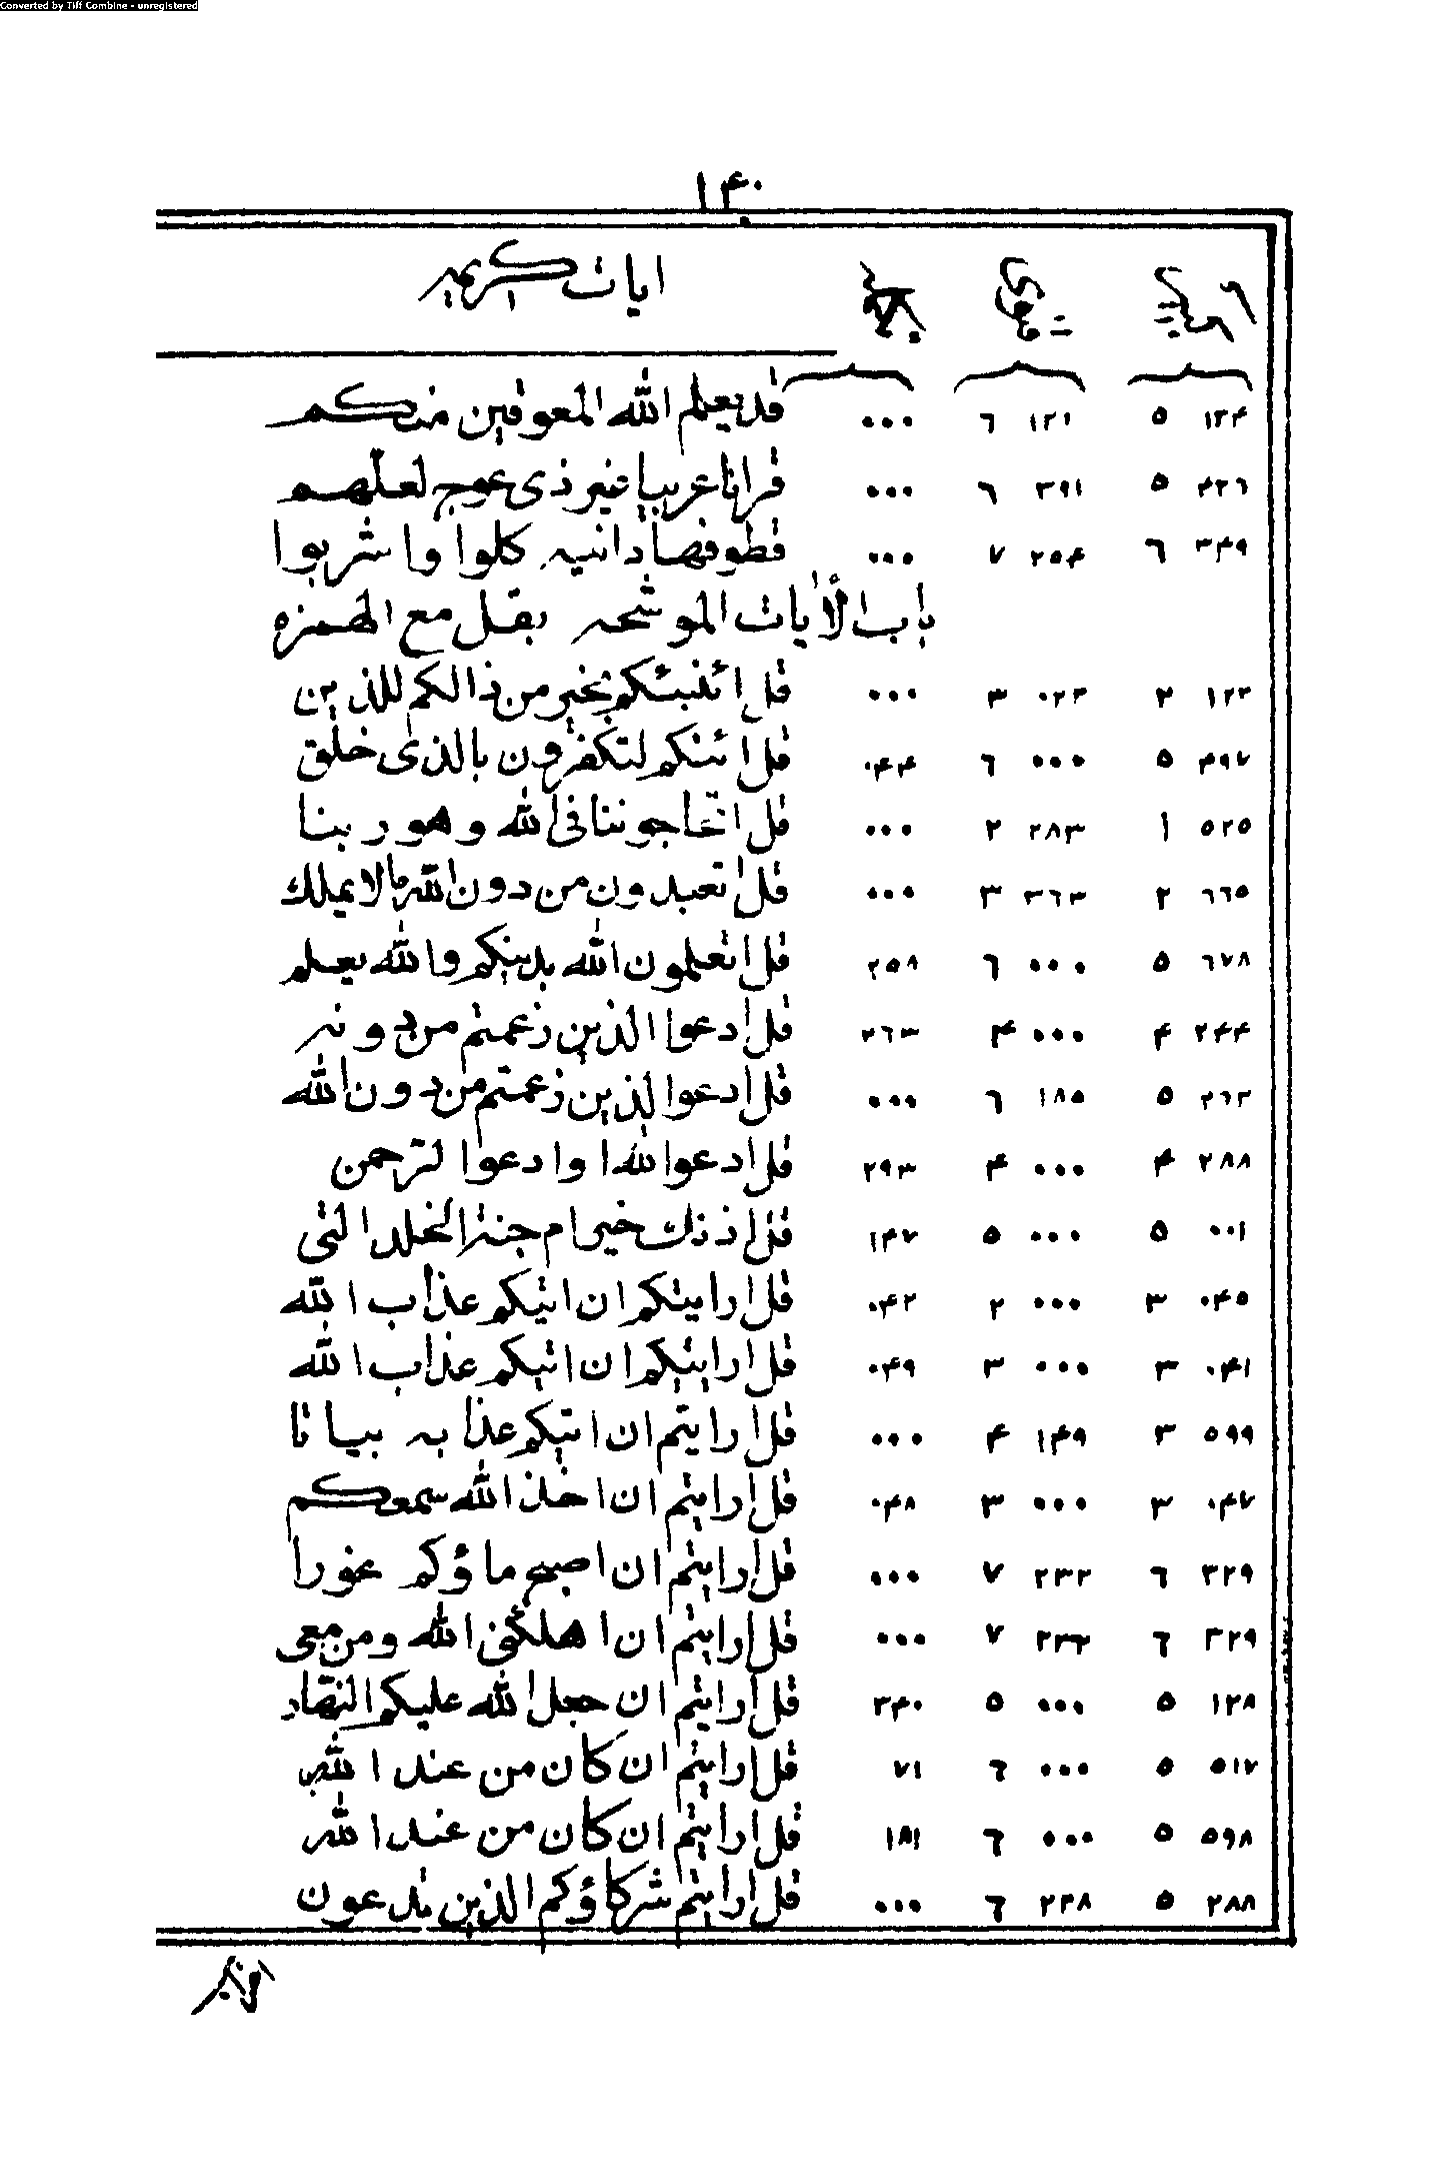 Converted by Tiff Combine - unregistered
١۴٠
ايات كريمه
١٣۴ ٥ ١٢١ ٦ ٠٠٠ قد يعلم الله المعوقين منكم
۴٢٦ ٥ ٣٩١ ٦ ٠٠٠ قرانا عربيا غير ذى عوج لعلّهم
٣۴٩ ٦ ٢٥۴ ٧ ٠٠٠ قطوفها دانيه كلوا واشربوا
باب الأيات الموشحه بقل مع الهمزه
١٢٣ ٢ ٠٢٣ ٣ ٠٠٠ قل ائنبئكم بخير من ذالكم للذين
۴٩٧ ٥ ٠٠٠ ٦ ٠۴۴ قل ائنكم لتكفرون بالذى خلق
٥٢٥ ١ ٢٨٣ ٢ ٠٠٠ قل اتحاجوننا فى الله وهو ربنا
٦٦٥ ٢ ٣٦٣ ٣ ٠٠٠ قل اتعبدون من دون الله مالا يملك
٦٧٨ ٥ ٠٠٠ ٦ ٢٥٨ قل اتعلمون الله بدينكم والله يعلم
٢۴۴ ۴ ٠٠٠ ۴ ٢٦٣ قل ادعوا الذين زعمتم من دونه
٢٦٣ ٥ ١٨٥ ٦ ٠٠٠ قل ادعوا الذين زعمتم من دون الله
٢٨٨ ۴ ٠٠٠ ۴ ٢٩٣ قل ادعوا لله اوادعوا لترحمن
٠٠١ ٥ ٠٠٠ ٥ ١۴٧ قل اذ ذلك خير ام جنة الخلد التى
٠۴٥ ٣ ٠٠٠ ٢ ٠۴٢ قل ارايتكم ان اتيكم عذاب الله
٠۴١ ٣ ٠٠٠ ٣ ٠۴٩ قل ارايتكم ان اتيكم عذاب الله
٥٩٩ ٣ ١۴٩ ۴ ٠٠٠ قل ارايتم ان اتيكم عذابه بياتا
٠۴٧ ٣ ٠٠٠ ٣ ٠۴٨ قل ارايتم ان اخذ الله سمعكم
٣٢٩ ٦ ٢٣٢ ٧ ٠٠٠ قل ارايتم ان اصبح ماؤكم غورا
٣٢٩ ٦ ٢٣٢ ٧ ٠٠٠ قل ارايتم ان اهلكنى الله ومن معى
١٢٨ ٥ ٠٠٠ ٥ ٣۴٠ قل ارايتم ان جعل الله عليكم النهار
٥١٧ ٥ ٠٠٠ ٦ ٧١ قل ارايتم ان كان من عند الله
٥٩٨ ٥ ٠٠٠ ٦ ١٨١ قل ارايتم ان كان من عند الله
٢٨٨ ٥ ٢٣٨ ٦ ٠٠٠ قل ارايتم شركاؤكم الذين تدعون